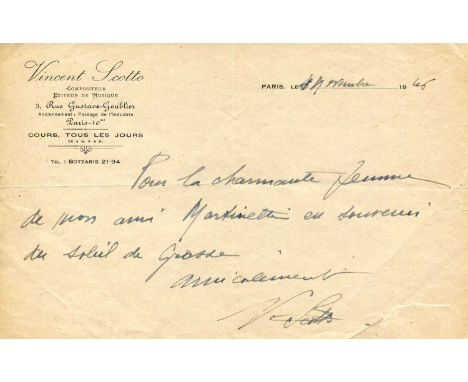 Vincent Scotto
COMPOSITEUR
EDITEUR DE MUSIQUE
3, Rue Gustave-Goublier
Anciennement: Passage de l'Industrie
Paris-10me
COURS, TOUS LES JOURS
DE 4 H. À 6 H.
TÉL : BOTZARIS 21-94
PARIS, LE Novembre 1946
Pour la charmante femme
de mon ami Martinetti en souvenir
du soleil de Grasse
amicalement
V. Scotto